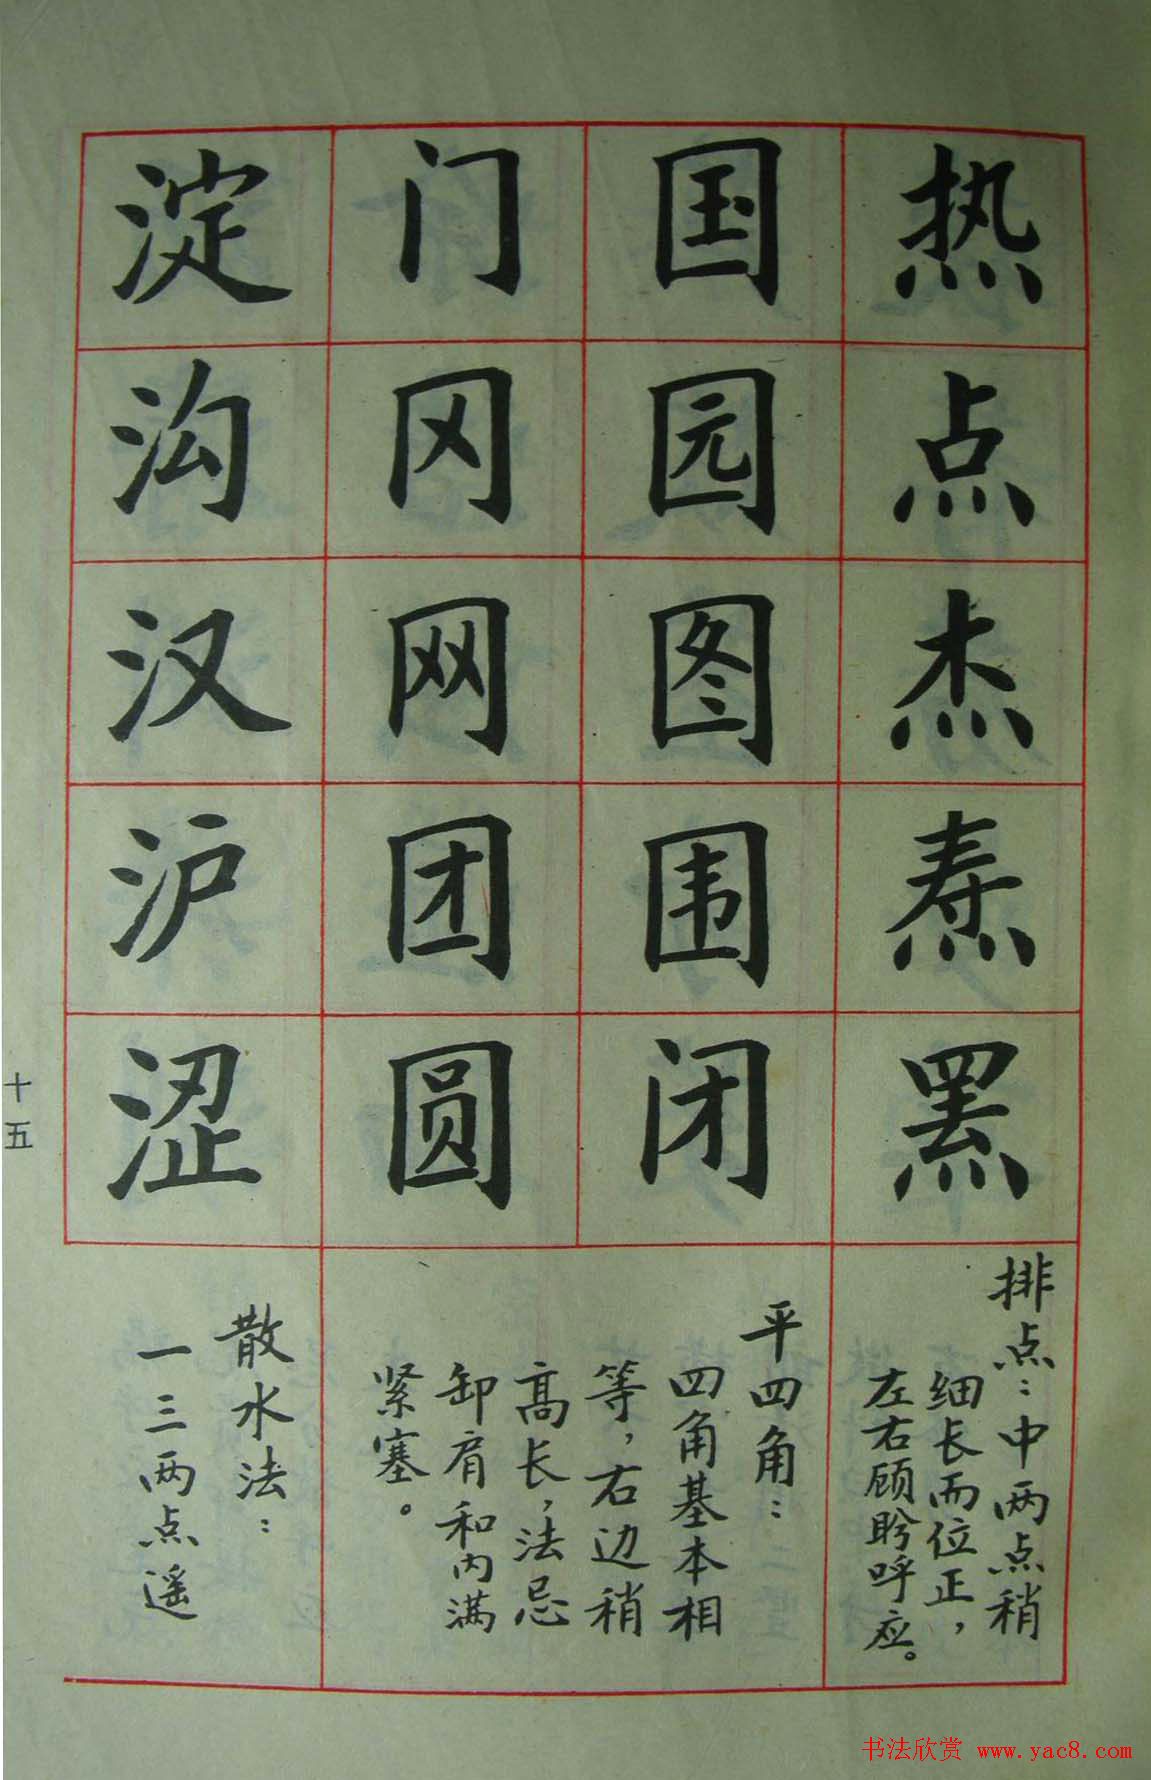 热
点
杰
焘
黑
排点：中两点稍
细长而位正，
左右顾盼呼应。
国
园
图
围
闭
门
冈
网
团
圆
平四角：
四角基本相
等，右边稍
高长，法忌
卸肩和内满
紧塞。
淀
沟
汉
沪
涩
散水法：
一三两点遥
十五
书法欣赏 www.yac8.com